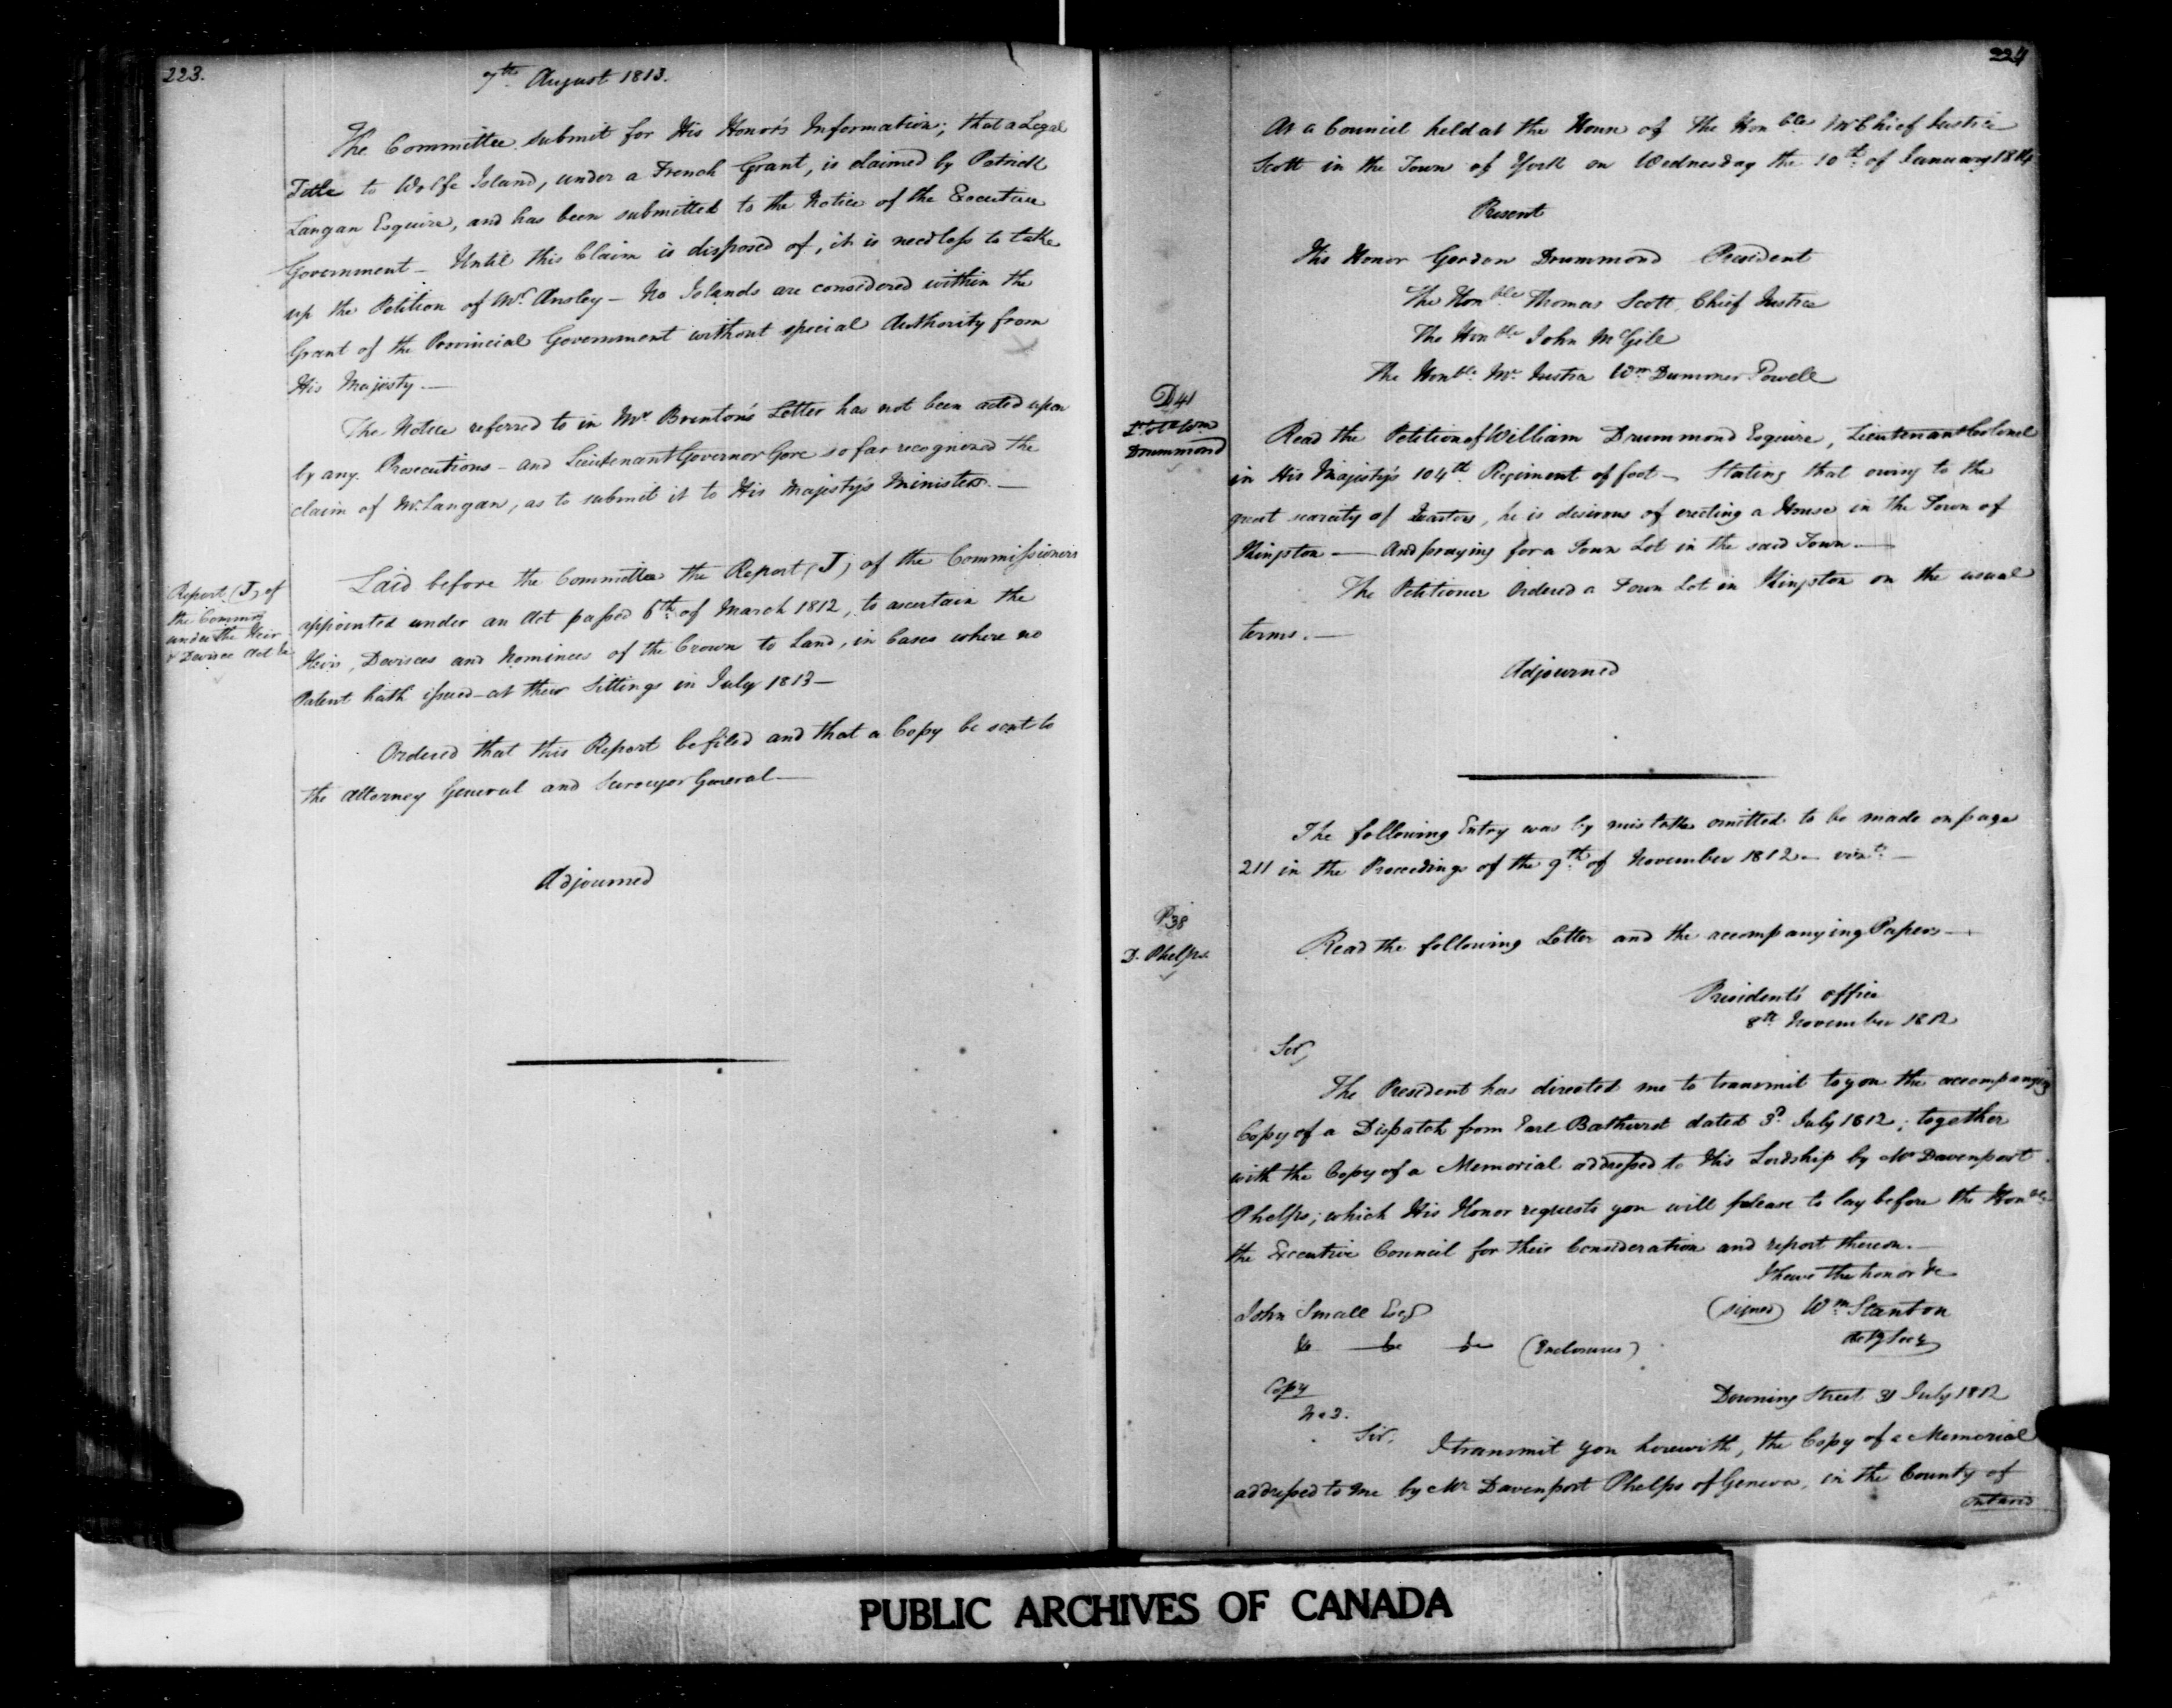 223.
7th August 1813.
The Committee submit for His Honor's Information; that a Legal
Title to Wolfe Island, under a French Grant, is claimed by Patrick
Langan Esquire, and has been submitted to the Notice of the Executive
Government — Until this Claim is disposed of, it is needless to take
up the Petition of Mr. Ansley — No Islands are considered within the
Grant of the Provincial Government without special Authority from
His Majesty. —
The Notice referred to in Mr. Brenton's Letter has not been acted upon
by any Prosecutions — and Lieutenant Governor Gore so far recognized the
claim of Mr. Langan, as to submit it to His Majesty's Ministers. —
Report (J) of
the Commrs
under the Heir
& Devisee Act &c
Laid before the Committee the Report (J) of the Commissioners
appointed under an Act passed 6th of March 1812, to ascertain the
Heirs, Devisees and Nominees of the Crown to Land, in Cases where no
Patent hath issued — at their Sittings in July 1813 —
Ordered that this Report be filed and that a Copy be sent to
the Attorney General and Surveyor General —
Adjourned
224
At a Council held at the House of the Honble Mr Chief Justice
Scott in the Town of York on Wednesday the 10th of January 1814
Present
His Honor Gordon Drummond President
The Honble Thomas Scott, Chief Justice
The Honble John McGill
The Honble Mr. Justice Wm Dummer Powell
D 41
Lt Col Wm
Drummond
Read the Petition of William Drummond Esquire, Lieutenant Colonel
in His Majesty's 104th Regiment of foot — Stating that owing to the
great scarcity of Quarters, he is desirous of erecting a House in the Town of
Kingston — And praying for a Town Lot in the said Town —
The Petitioner Ordered a Town Lot in Kingston on the usual
terms. —
Adjourned
The following Entry was by mistake omitted to be made on page
211 in the Proceedings of the 9th of November 1812 — vizt. —
P 38
D. Phelps
Read the following Letter and the accompanying Papers —
President's office
8th November 1812
Sir,
The President has directed me to transmit to you the accompanying
Copy of a Dispatch from Earl Bathurst dated 3d July 1812; together
with the Copy of a Memorial addressed to His Lordship by Mr Davenport
Phelps; which His Honor requests you will please to lay before the Honble
the Executive Council for their Consideration and report thereon. —
I have the honor &c
John Small Esqr
(signed) Wm Stanton
&c &c &c (Enclosures)
Actg Secy
Copy
No 3.
Downing Street 3d July 1812
Sir, I transmit you herewith, the Copy of a Memorial
addressed to me by Mr Davenport Phelps of Geneva, in the County of
Ontario
PUBLIC ARCHIVES OF CANADA